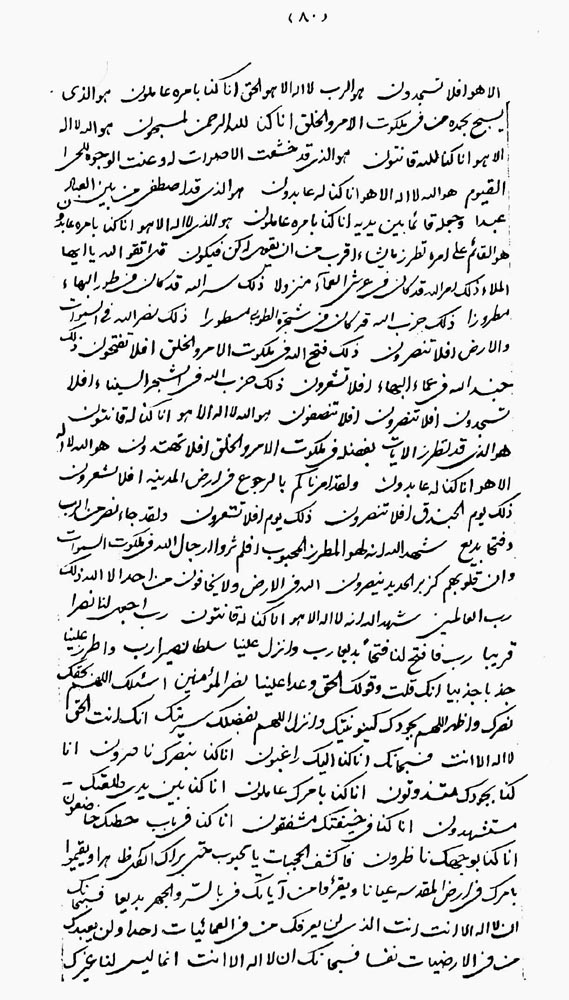 (٨٠)
الا هو افلا تسجدون هو الرب لا اله الا هو الحق انا كنا بامره عاملون هو الذى
يسبح بحمده من فى ملكوت الامر و الخلق انا كنا لله الرحمن لمسبحون هو الله لا اله
الا هو انا كنا لله قانتون هو الذى قد خشعت الاصوات له و عنت الوجوه للحى
القيوم هو الله لا اله الا هو انا كنا له عابدون هو الذى قد اصطفى من بين العباد
عبدا و جعله قائما بين يديه انا كنا بامره عاملون هو الذى لا اله الا هو انا كنا بامره
هو القائم على امره تطرز ما يشاء اقرب من ان يقول له كن فيكون قد اتقوا الله يا ايها
الملاء ذلك امر الله قد كان فى عرش العمآء منزولا ذلك سر الله قد كان فى طور البهاء
مطروزا ذلك حزب الله قد كان فى شجرة الطوبى مسطورا ذلك نصر الله فى السموات
و الارض افلا تنصرون ذلك فتح الله فى ملكوت الامر و الخلق افلا تفتحون ذلك
جند الله فى عماء البهاء افلا تشعرون ذلك حزب الله فى الشجر السيناء افلا
تسجدون افلا تنصرون افلا تنصفون هو الله لا اله الا هو انا كنا له قانتون
هو الذى قد تطرز الايات بفضله فى ملكوت الامر و الخلق افلا تهتدون هو الله لا اله
الا هو انا كنا له عابدون ولقد امرناكم بالرجوع فى ارض المدينه افلا تشعرون
ذلك يوم الخندق افلا تنصرون ذلك يوم افلا تشعرون ولقد جاء نصر من الرب
و فتحا بديع شهد الله انه لهو المطرز المحبوب رجال الله فى ملكوت السموات
و ان قلوبهم كزبر الحديد ينصرون الله فى الارض ولا يخافون من احد الا الله ذلك
رب العالمين شهد الله انه لا اله الا هو انا كنا له قانتون رب اجعل لنا نصرا
قريبا رب فافتح لنا فتحا بديعا رب و انزل علينا سلطانا نصيرا رب و اطرز علينا
جذبا جذبيا انك قلت و قولك الحق وعدا علينا نصر المؤمنين اسئلك اللهم
نصرك و اظهر اللهم بجودك كينونيتك و انزل اللهم بفضلك انك انت الحق
لا اله الا انت فسبحانك انا كنا اليك راغبون انا كنا بنصرك ناصرون انا
كنا بجودك انا كنا بامرك عاملون انا كنا بين يدى طلعتك
مستشهدون انا كنا فى خيفتك مشفقون انا كنا فى باب حطتك خاضعون
انا كنا بوجهك ناظرون فاكشف الحجبات يا محبوب حتى يراك الكل ظاهرا و يقيموا
بامرك فى ارض المقدسه عيانا و يقرؤا من آياتك فى بالسر و الجهر بديعا فسبحانك
ان لا اله الا انت انت الذى لن يعرفك من فى العمائيات احدا و لن يعبدك
من فى الارضيات نفسا فسبحانك ان لا اله الا انت انما ليس لنا غيرك